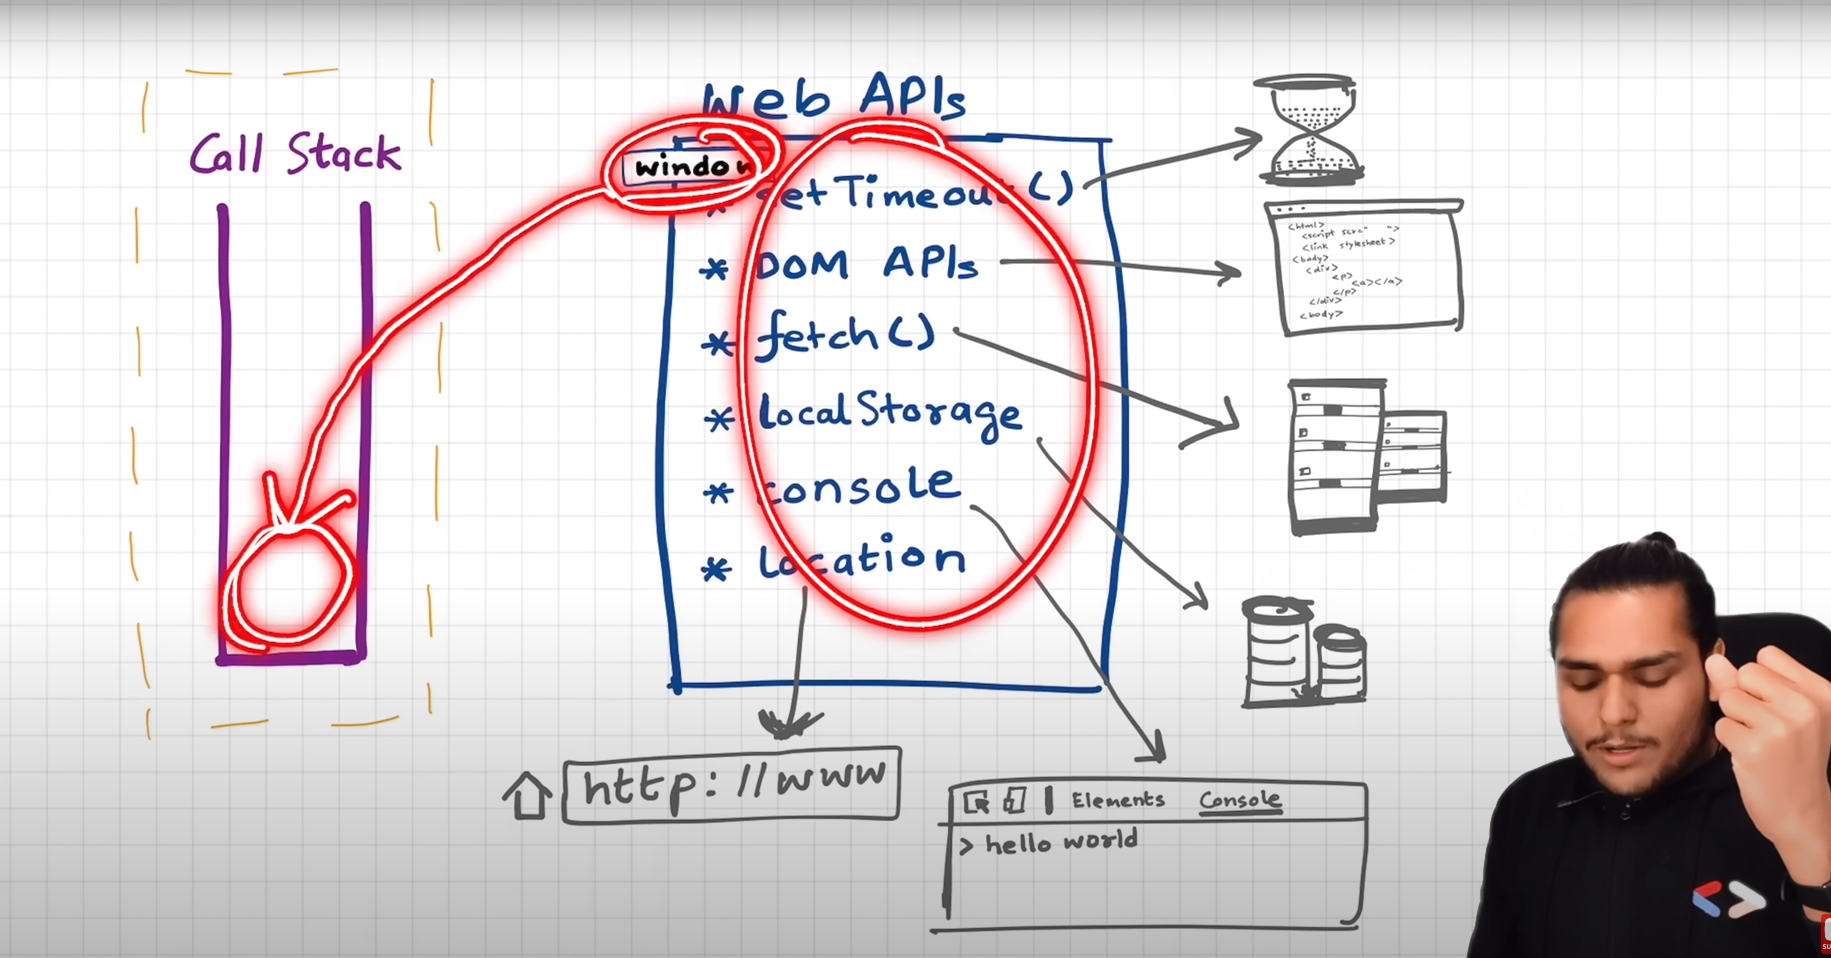 Web APIs
Call Stack
window
* setTimeout()
* DOM APIs
* fetch()
* localStorage
* console
* Location
<html>
<link stylesheet>
<body>
<div>
<p>
<a></a>
</p>
</div>
<body>
http://www
Elements Console
> hello world